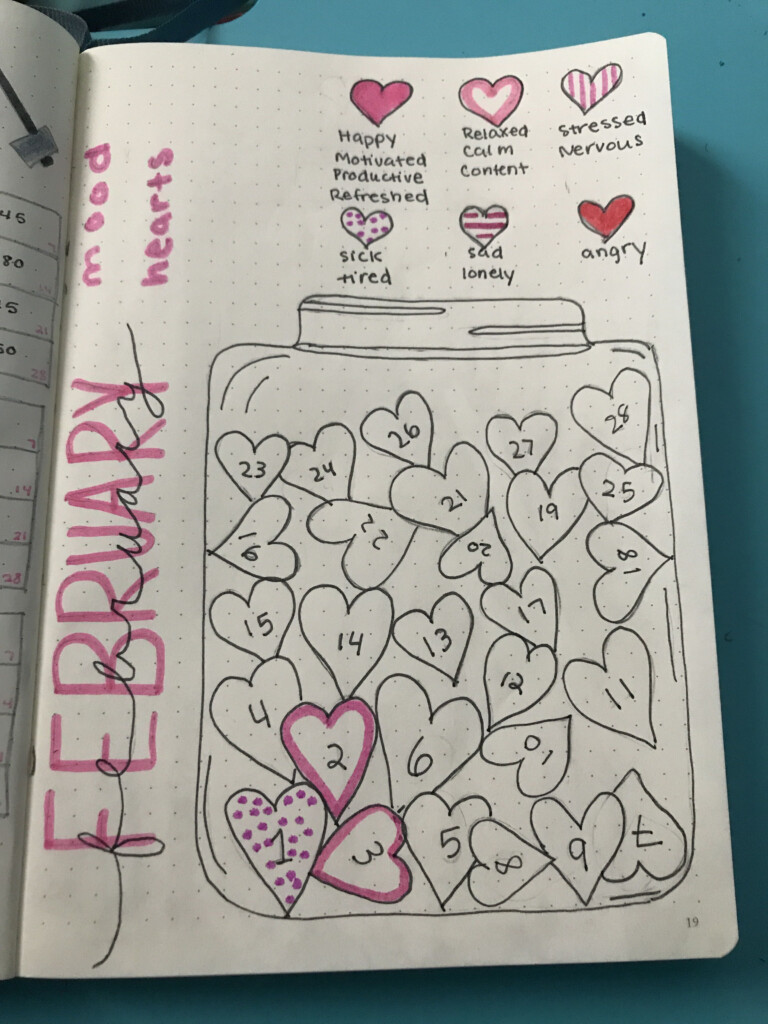 mood
hearts
FEBRUARY
february
Happy
Motivated
Productive
Refreshed
Relaxed
Calm
Content
Stressed
Nervous
sick
tired
sad
lonely
angry
28
26
27
23
24
21
25
19
22
16
20
18
15
14
13
17
4
12
11
2
6
10
1
3
5
8
9
7
19
45
80
28
7
14
21
28